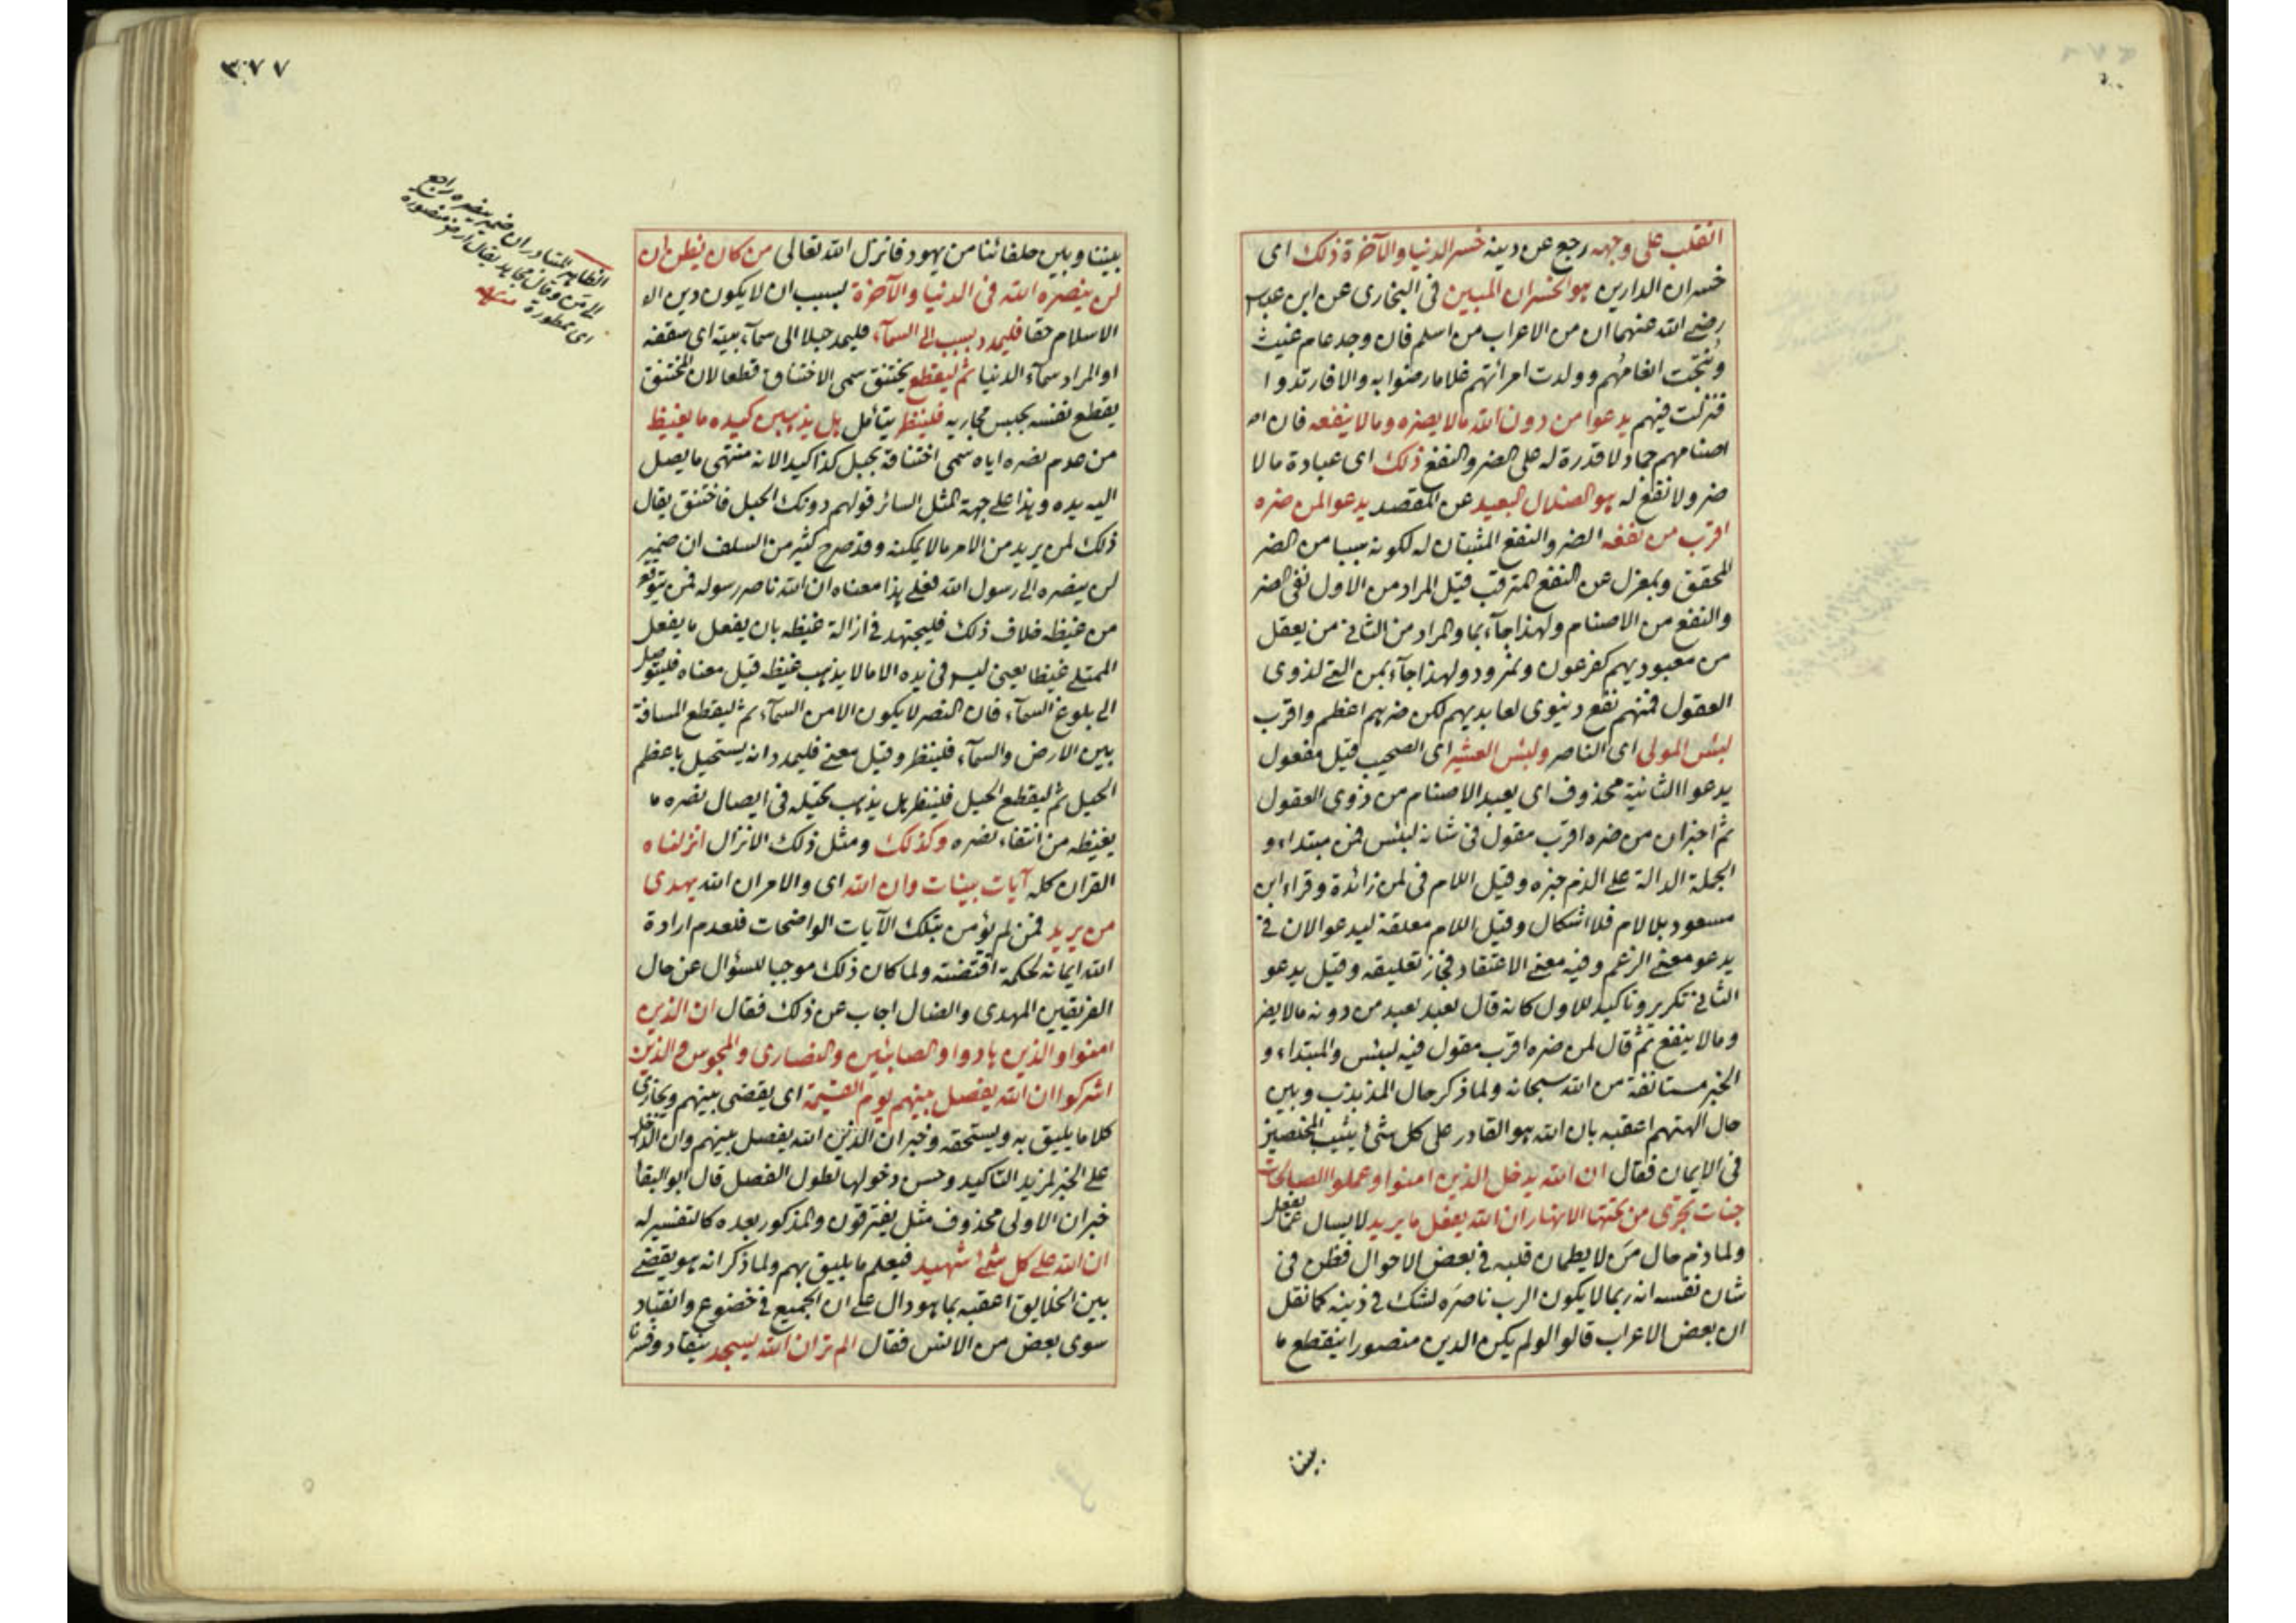 انقلب على وجهه رجع عن دينه خسر الدنيا والآخرة ذلك اى
خسران الدارين هو الخسران المبين فى البخارى عن ابن عباس
رضى الله عنهما ان من الاعراب من اسلم فان وجد عام غيث
ونتجت انعامهم وولدت امرأتهم غلاما رضوا به والا فارتدوا
فنزلت فيهم يدعوا من دون الله مالا يضره ومالا ينفعه فان
اصنامهم جماد لا قدرة له على الضر والنفع ذلك اى عبادة ما لا
ضر ولا نفع له هو الضلال البعيد عن المقصد يدعوا لمن ضره
اقرب من نفعه الضر والنفع المثبتان له لكونه سببا من الضر
المحقق وبمعزل عن النفع المترقب قيل المراد من الاول نفى الضر
والنفع من الاصنام ولهذا جآء بما والمراد من الثانى من يعقل
من معبوديهم كفرعون ونمرود ولهذا جآء بمن التى لذوى
العقول فمنهم نفع دنيوى لعابديهم لكن ضرهم اعظم واقرب
لبئس المولى اى الناصر ولبئس العشير اى الصحيب قيل مفعول
يدعوا الثانية محذوف اى يعبد الاصنام من ذوى العقول
ثم اخبر ان من ضره اقرب مقول فى شانه لبئس فمن مبتداء و
الجملة الدالة على الذم خبره وقيل اللام فى لمن زائدة وقراء ابن
مسعود بلا لام فلا اشكال وقيل اللام معلقة ليدعو الان فى
يدعو معنى الزعم وفيه معنى الاعتقاد فجاز تعليقه وقيل يدعو
الثانى تكرير وتاكيد للاول كانه قال يعبد يعبد من دونه مالا يضر
ومالا ينفع ثم قال لمن ضره اقرب مقول فيه لبئس والمبتداء و
الخبر مستانفة من الله سبحانه ولما ذكر حال المذبذب وبين
حال الهتهم اعقبه بان الله هو القادر على كل شئ يثيب المخلصين
فى الايمان فقال ان الله يدخل الذين امنوا وعملوا الصالحات
جنات تجرى من تحتها الانهار ان الله يفعل ما يريد لا يسال عما يفعل
ولما ذم حال من لا يطمان قلبه فى بعض الاحوال فظن فى
شان نفسه انه ربما لا يكون الرب ناصره لشك فى دينه كما نقل
ان بعض الاعراب قالوا لو لم يكن الدين منصورا ينقطع ما
بيننا
٣٧٧
بيننا وبين حلفائنا من يهود فانزل الله تعالى من كان يظن ان
لن ينصره الله فى الدنيا والآخرة بسبب ان لا يكون دين
الاسلام حقا فليمدد بسبب الى السمآء فليمد حبلا الى سمآء بيته اى سقفه
او المراد سمآء الدنيا ثم ليقطع يختنق سمى الاختناق قطعا لان المختنق
يقطع نفسه بحبس مجاريه فلينظر يتأمل هل يذهبن كيده ما يغيظ
من عدم نصره اياه سمى اختناقه بحبل كذا كيدا لانه منتهى ما يصل
اليه يده وهذا على جهة المثل السائر قولهم دونك الحبل فاختنق يقال
ذلك لمن يريد من الامر مالا يمكنه وقد صرح كثير من السلف ان ضمير
لن ينصره الى رسول الله فعلى هذا معناه ان الله ناصر رسوله فمن يتوقع
من غيظه خلاف ذلك فليجتهد فى ازالة غيظه بان يفعل ما يفعل
الممتلى غيظا يعنى ليس فى يده الا مالا يذهب غيظه قيل معناه فليتوصل
الى بلوغ السمآء فان النصر لا يكون الا من السمآء ثم ليقطع المسافة
بين الارض والسمآء فلينظر وقيل معنى فليمدد انه يستحيل باعظم
الحيل ثم ليقطع الحيل فلينظر هل يذهب تحيله فى ايصال نصره ما
يغيظه من انتفاء نصره وكذلك ومثل ذلك الانزال انزلناه
القران كله آيات بينات وان الله اى والامر ان الله يهدى
من يريد فمن لم يؤمن بتلك الآيات الواضحات فلعدم ارادة
الله ايمانه لحكمة اقتضته ولما كان ذلك موجبا للسؤال عن حال
الفريقين المهدى والضال اجاب عن ذلك فقال ان الذين
امنوا والذين هادوا والصابئين والنصارى والمجوس والذين
اشركوا ان الله يفصل بينهم يوم القيمة اى يقضى بينهم ويجازى
كلا ما يليق به ويستحقه وخبر ان الذين ان الله يفصل بينهم وان الداخل
على الخبر لمزيد التاكيد وحسن دخولها لطول الفصل قال ابو البقا
خبر ان الاولى محذوف مثل يفترقون والمذكور بعده كالتفسير له
ان الله على كل شئ شهيد فيعلم ما يليق بهم ولما ذكر انه هو يقضى
بين الخلايق اعقبه بما هو دال على ان الجميع فى خضوع وانقياد
سوى بعض من الانس فقال الم تر ان الله يسجد ينقاد وفسرنا
الظاهر المتبادر ان ضمير ينصره راجع
الى من وقال مجاهد يقال ارض منصورة
اى ممطورة منه